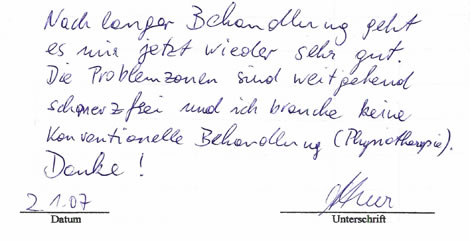 Nach langer Behandlung geht
es mir jetzt wieder sehr gut.
Die Problemzonen sind weitgehend
schmerzfrei und ich brauche keine
Konventionelle Behandlung (Physiotherapie).
Danke!
2 1.07
Datum Unterschrift